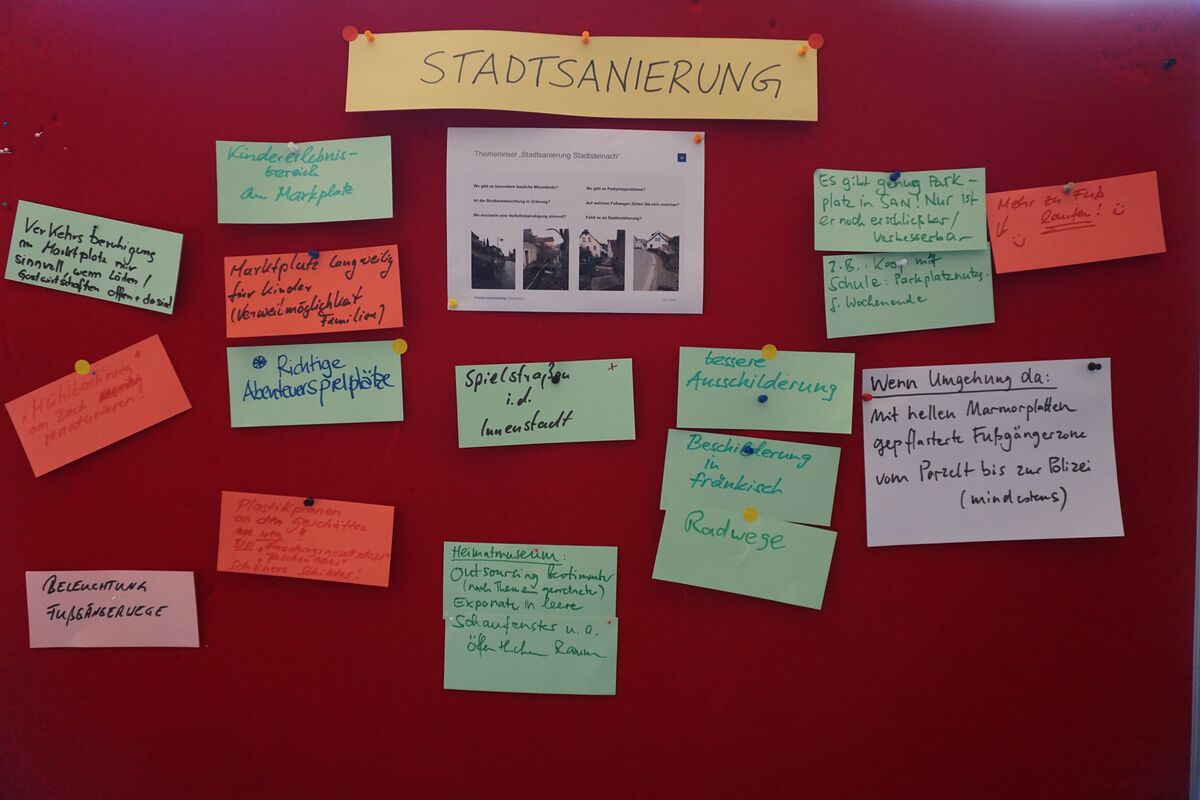 STADTSANIERUNG
Kindererlebnis-
bereich
am Marktplatz
Themeninsel „Stadtsanierung Stadtsteinach"
Wo gibt es besondere bauliche Missstände?
Ist die Straßenbeleuchtung in Ordnung?
Wo erscheint eine Verkehrsberuhigung sinnvoll?
Wo gibt es Parkplatzprobleme?
Auf welchen Fußwegen fühlen Sie sich unsicher?
Fehlt es an Stadtmöblierung?
Es gibt genug Park-
platz in SAN! Nur ist
er noch erschließbar/
verbesserbar
Mehr zu Fuß
laufen!
z.B.: Koop mit
Schule: Parkplatznutzg.
f. Wochenende
Verkehrsberuhigung
am Marktplatz nur
sinnvoll, wenn Läden/
Gastwirtschaften offen + da sind
Marktplatz langweilig
für Kinder
(Verweilmöglichkeit
Familien)
Richtige
Abenteuerspielplätze
„Mühlbachweg"
am Bach
renaturieren!
Spielstraßen
i.d.
Innenstadt
bessere
Ausschilderung
Beschilderung
in
fränkisch
Radwege
Wenn Umgehung da:
Mit hellen Marmorplatten
gepflasterte Fußgängerzone
vom Porzelt bis zur Polizei
(mindestens)
Plastikplanen
an den Geschäften
"Faschingsgesellschaft"
Schönere Schilder!
Heimatmuseum:
Outsourcing bestimmter
(nach Themen geordnete)
Exponate in leere
Schaufenster u. a.
öffentlichen Raum
BELEUCHTUNG
FUßGÄNGERWEGE